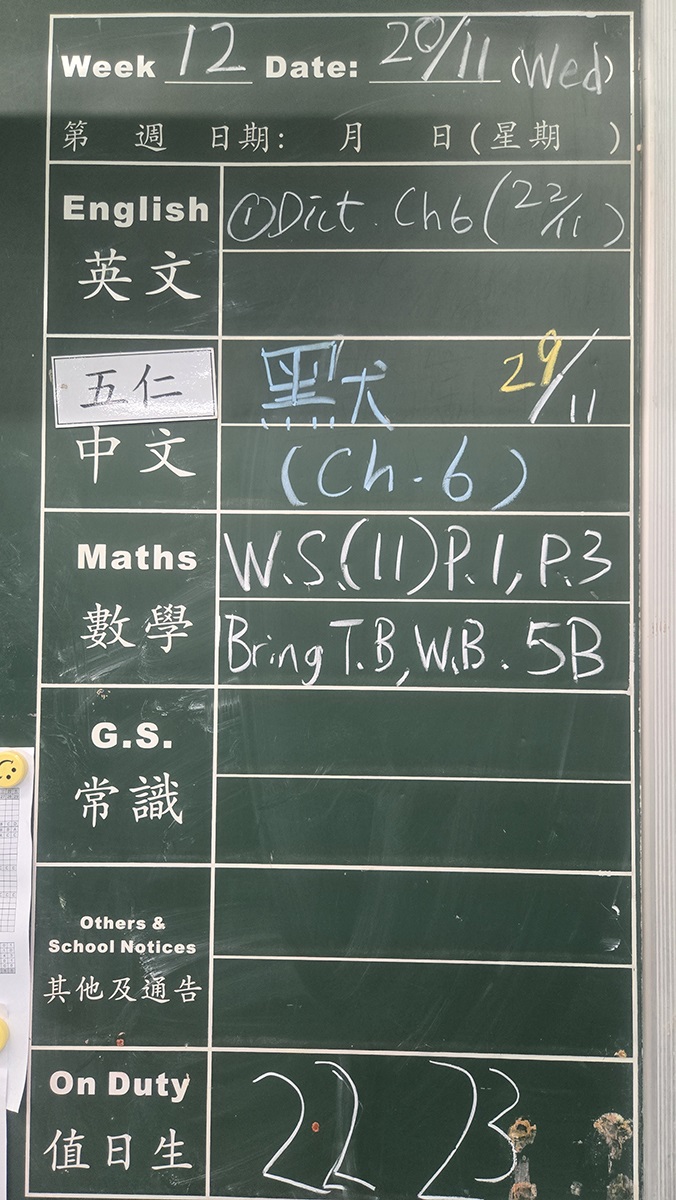 Week 12 Date: 20/11 (Wed)
第 週 日期: 月 日(星期 )
English ①Dict. Ch6 (22/11)
英文
五仁 默 29/11
中文 (Ch.6)
Maths W.S.(11) P.1, P.3
數學 Bring T.B, W.B. 5B
G.S.
常識
Others &
School Notices
其他及通告
On Duty 22 23
值日生